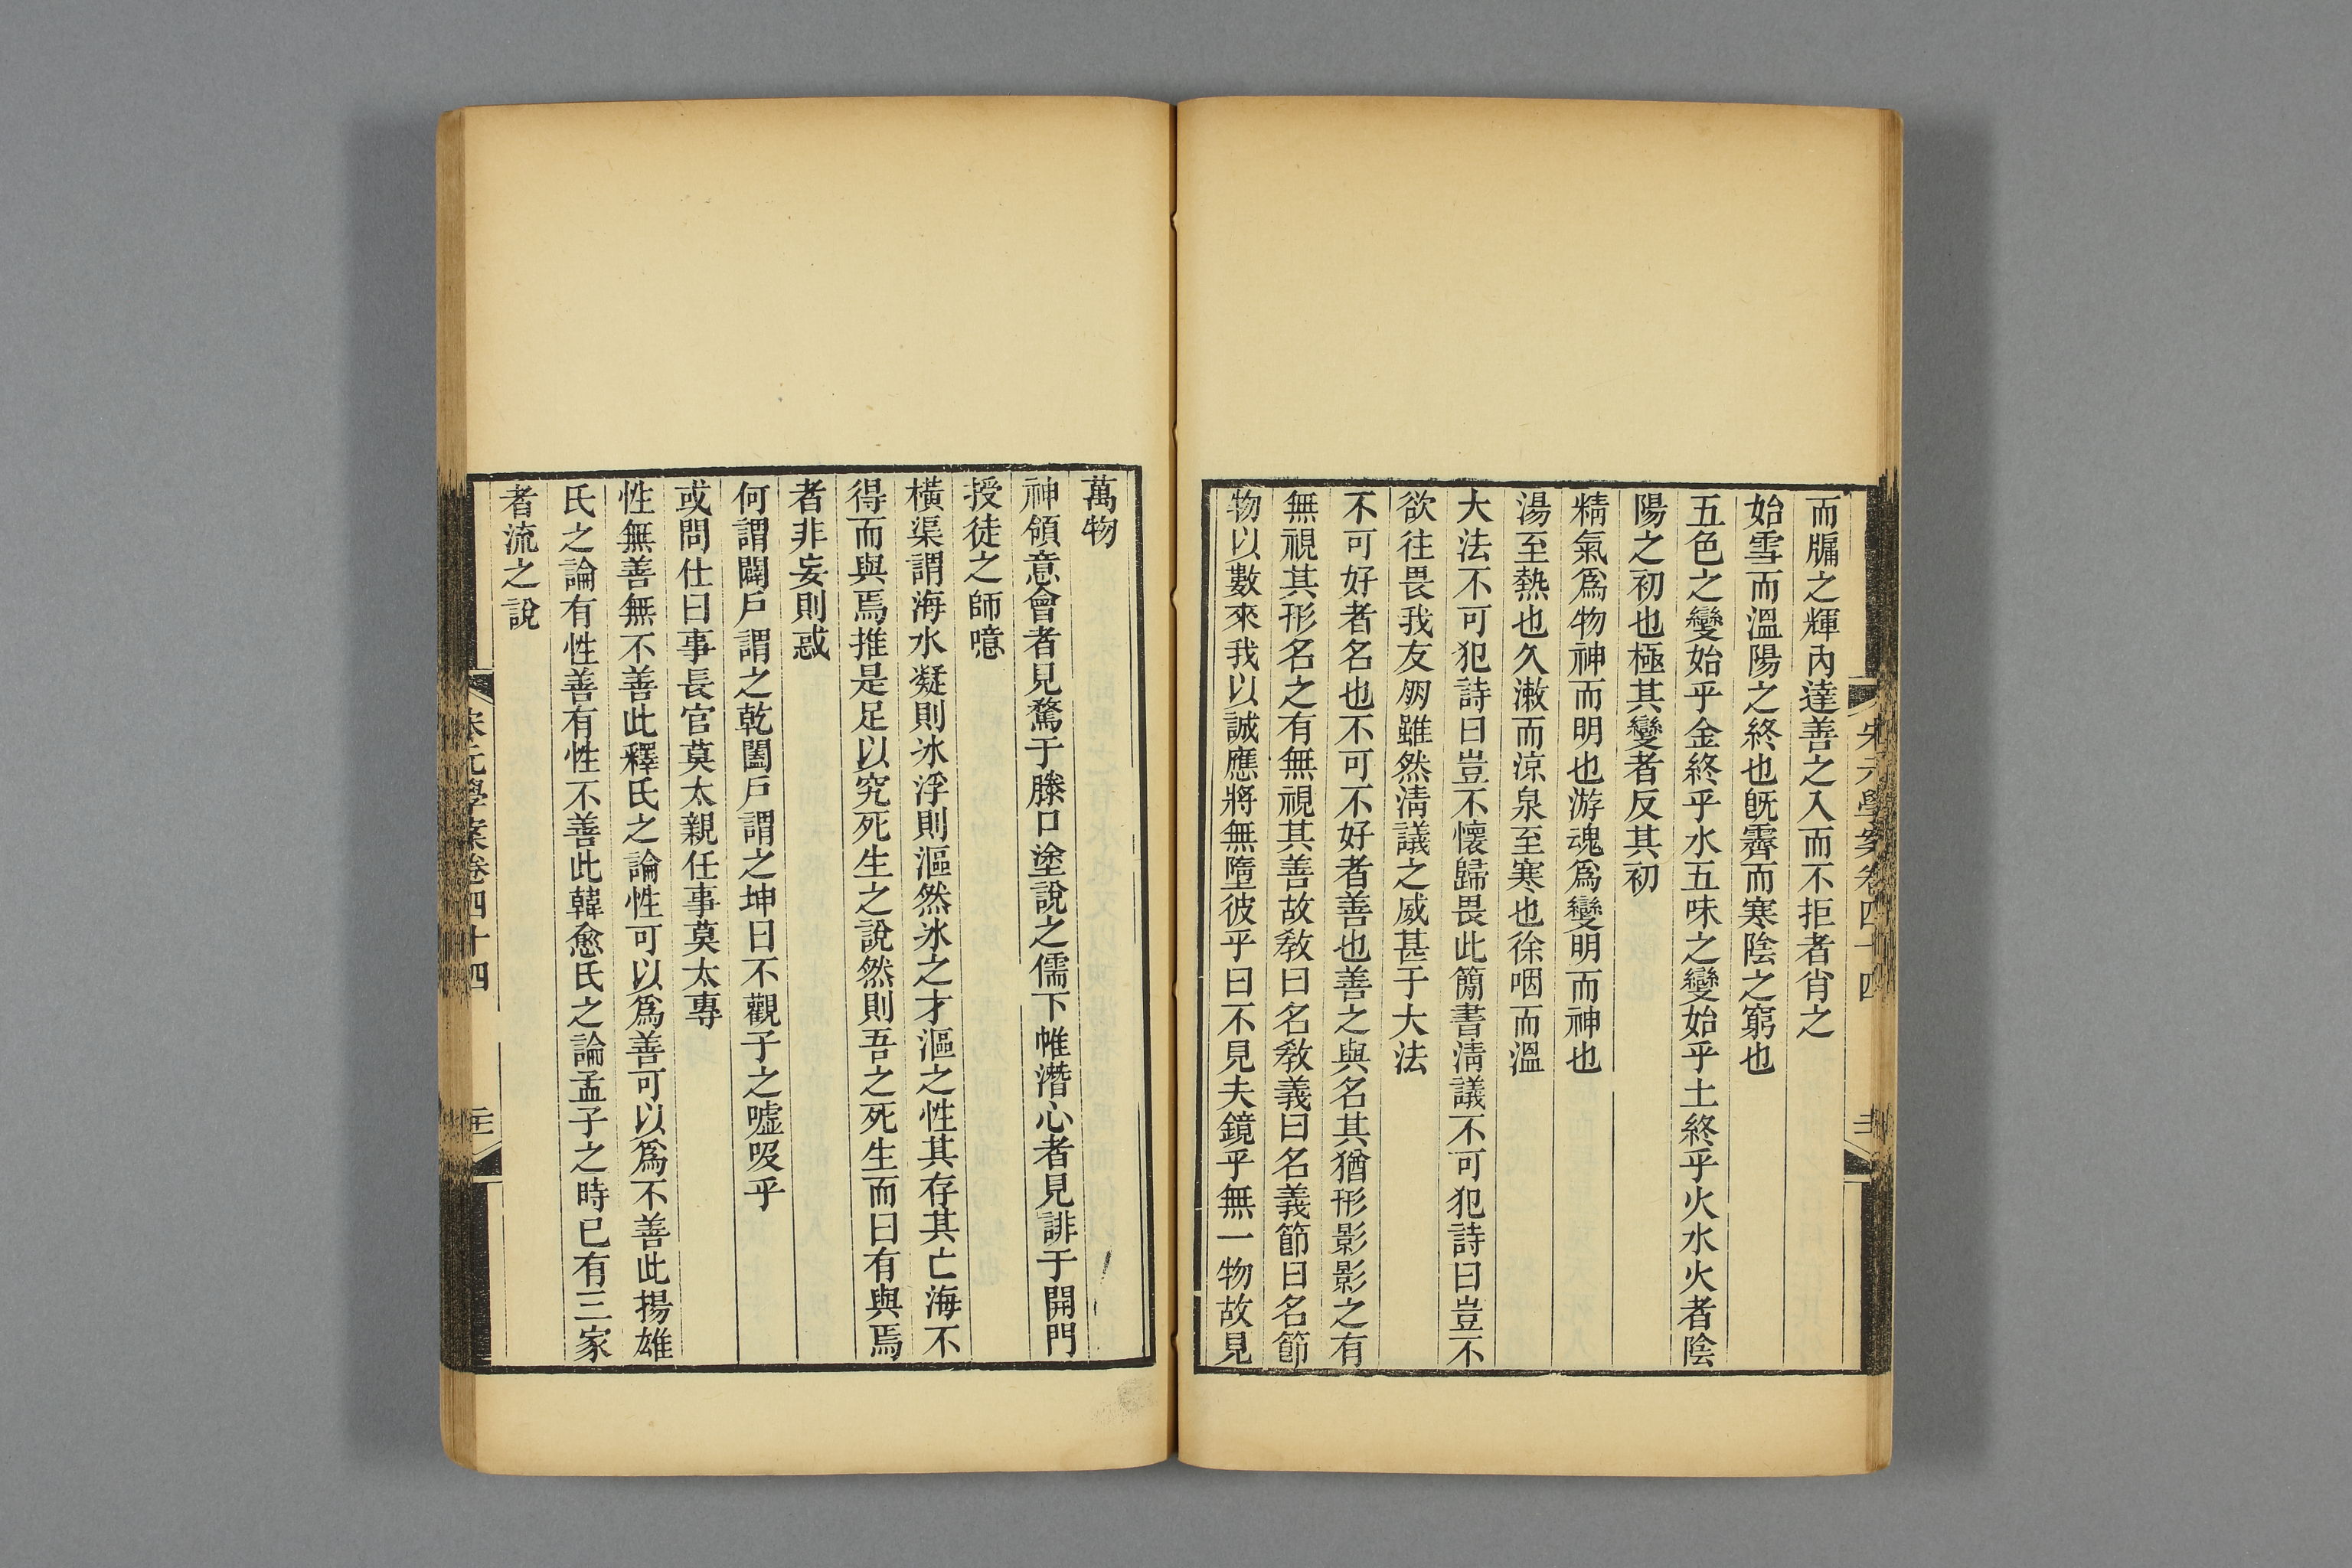 而牖之輝內達善之入而不拒者肖之
始雪而溫陽之終也旣霽而寒陰之窮也
五色之變始乎金終乎水五味之變始乎土終乎火水火者陰
陽之初也極其變者反其初
精氣爲物神而明也游魂爲變明而神也
湯至熱也久漱而涼泉至寒也徐咽而溫
大法不可犯詩曰豈不懷歸畏此簡書淸議不可犯詩曰豈不
欲往畏我友朋雖然淸議之威甚于大法
不可好者名也不可不好者善也善之與名其猶形影影之有
無視其形名之有無視其善故敎曰名敎義曰名義節曰名節
物以數來我以誠應將無墮彼乎曰不見夫鏡乎無一物故見
宋元學案卷四十四
萬物
神領意會者見騖于滕口塗說之儒下帷潛心者見誹于開門
授徒之師噫
橫渠謂海水凝則冰浮則漚然冰之才漚之性其存其亡海不
得而與焉推是足以究死生之說然則吾之死生而曰有與焉
者非妄則惑
何謂闢戶謂之乾闔戶謂之坤曰不觀子之噓吸乎
或問仕曰事長官莫太親任事莫太專
性無善無不善此釋氏之論性可以爲善可以爲不善此揚雄
氏之論有性善有性不善此韓愈氏之論孟子之時已有三家
者流之說
宋元學案卷四十四